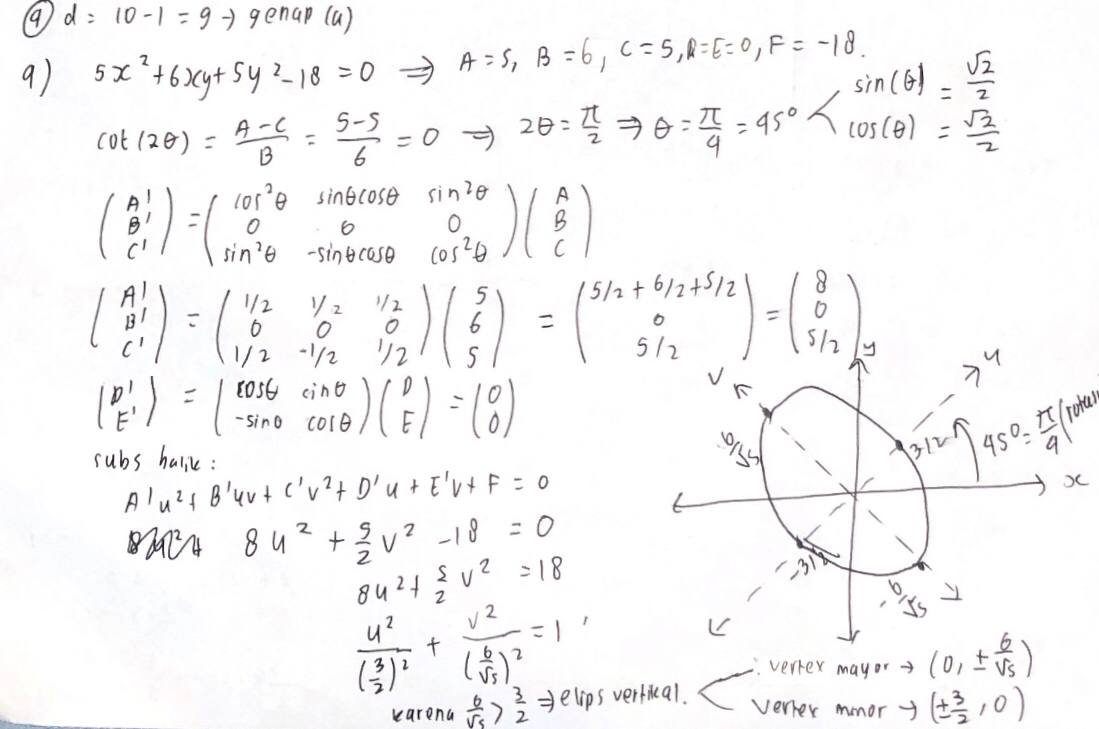 ④ d = 10-1 = 9 → genap (a)
a) 5x²+6xy+5y²-18 = 0 ⇒ A = 5, B = 6, C = 5, D=E=0, F = -18.
cot(2θ) = (A-C)/B = (5-5)/6 = 0 → 2θ = π/2 ⇒ θ = π/4 = 45° < sin(θ) = √2/2
cos(θ) = √2/2
(A' B' C') = (cos²θ sinθcosθ sin²θ; 0 0 0; sin²θ -sinθcosθ cos²θ) (A B C)
(A' B' C') = (1/2 1/2 1/2; 0 0 0; 1/2 -1/2 1/2) (5 6 5) = (5/2 + 6/2 + 5/2; 0; 5/2) = (8 0 5/2)
(D' E') = (cosθ sinθ; -sinθ cosθ) (D E) = (0 0)
subs balik :
A'u² + B'uv + C'v² + D'u + E'v + F = 0
8u² + 5/2 v² - 18 = 0
8u² + 5/2 v² = 18
u²/(3/2)² + v²/(6/√5)² = 1
karena 6/√5 > 3/2 ⇒ elips vertikal.
vertex mayor → (0, ± 6/√5)
vertex minor → (± 3/2, 0)
y
u
v
6/√5
3/2
45° = π/4 (rotasi
x
-3/2
-6/√5